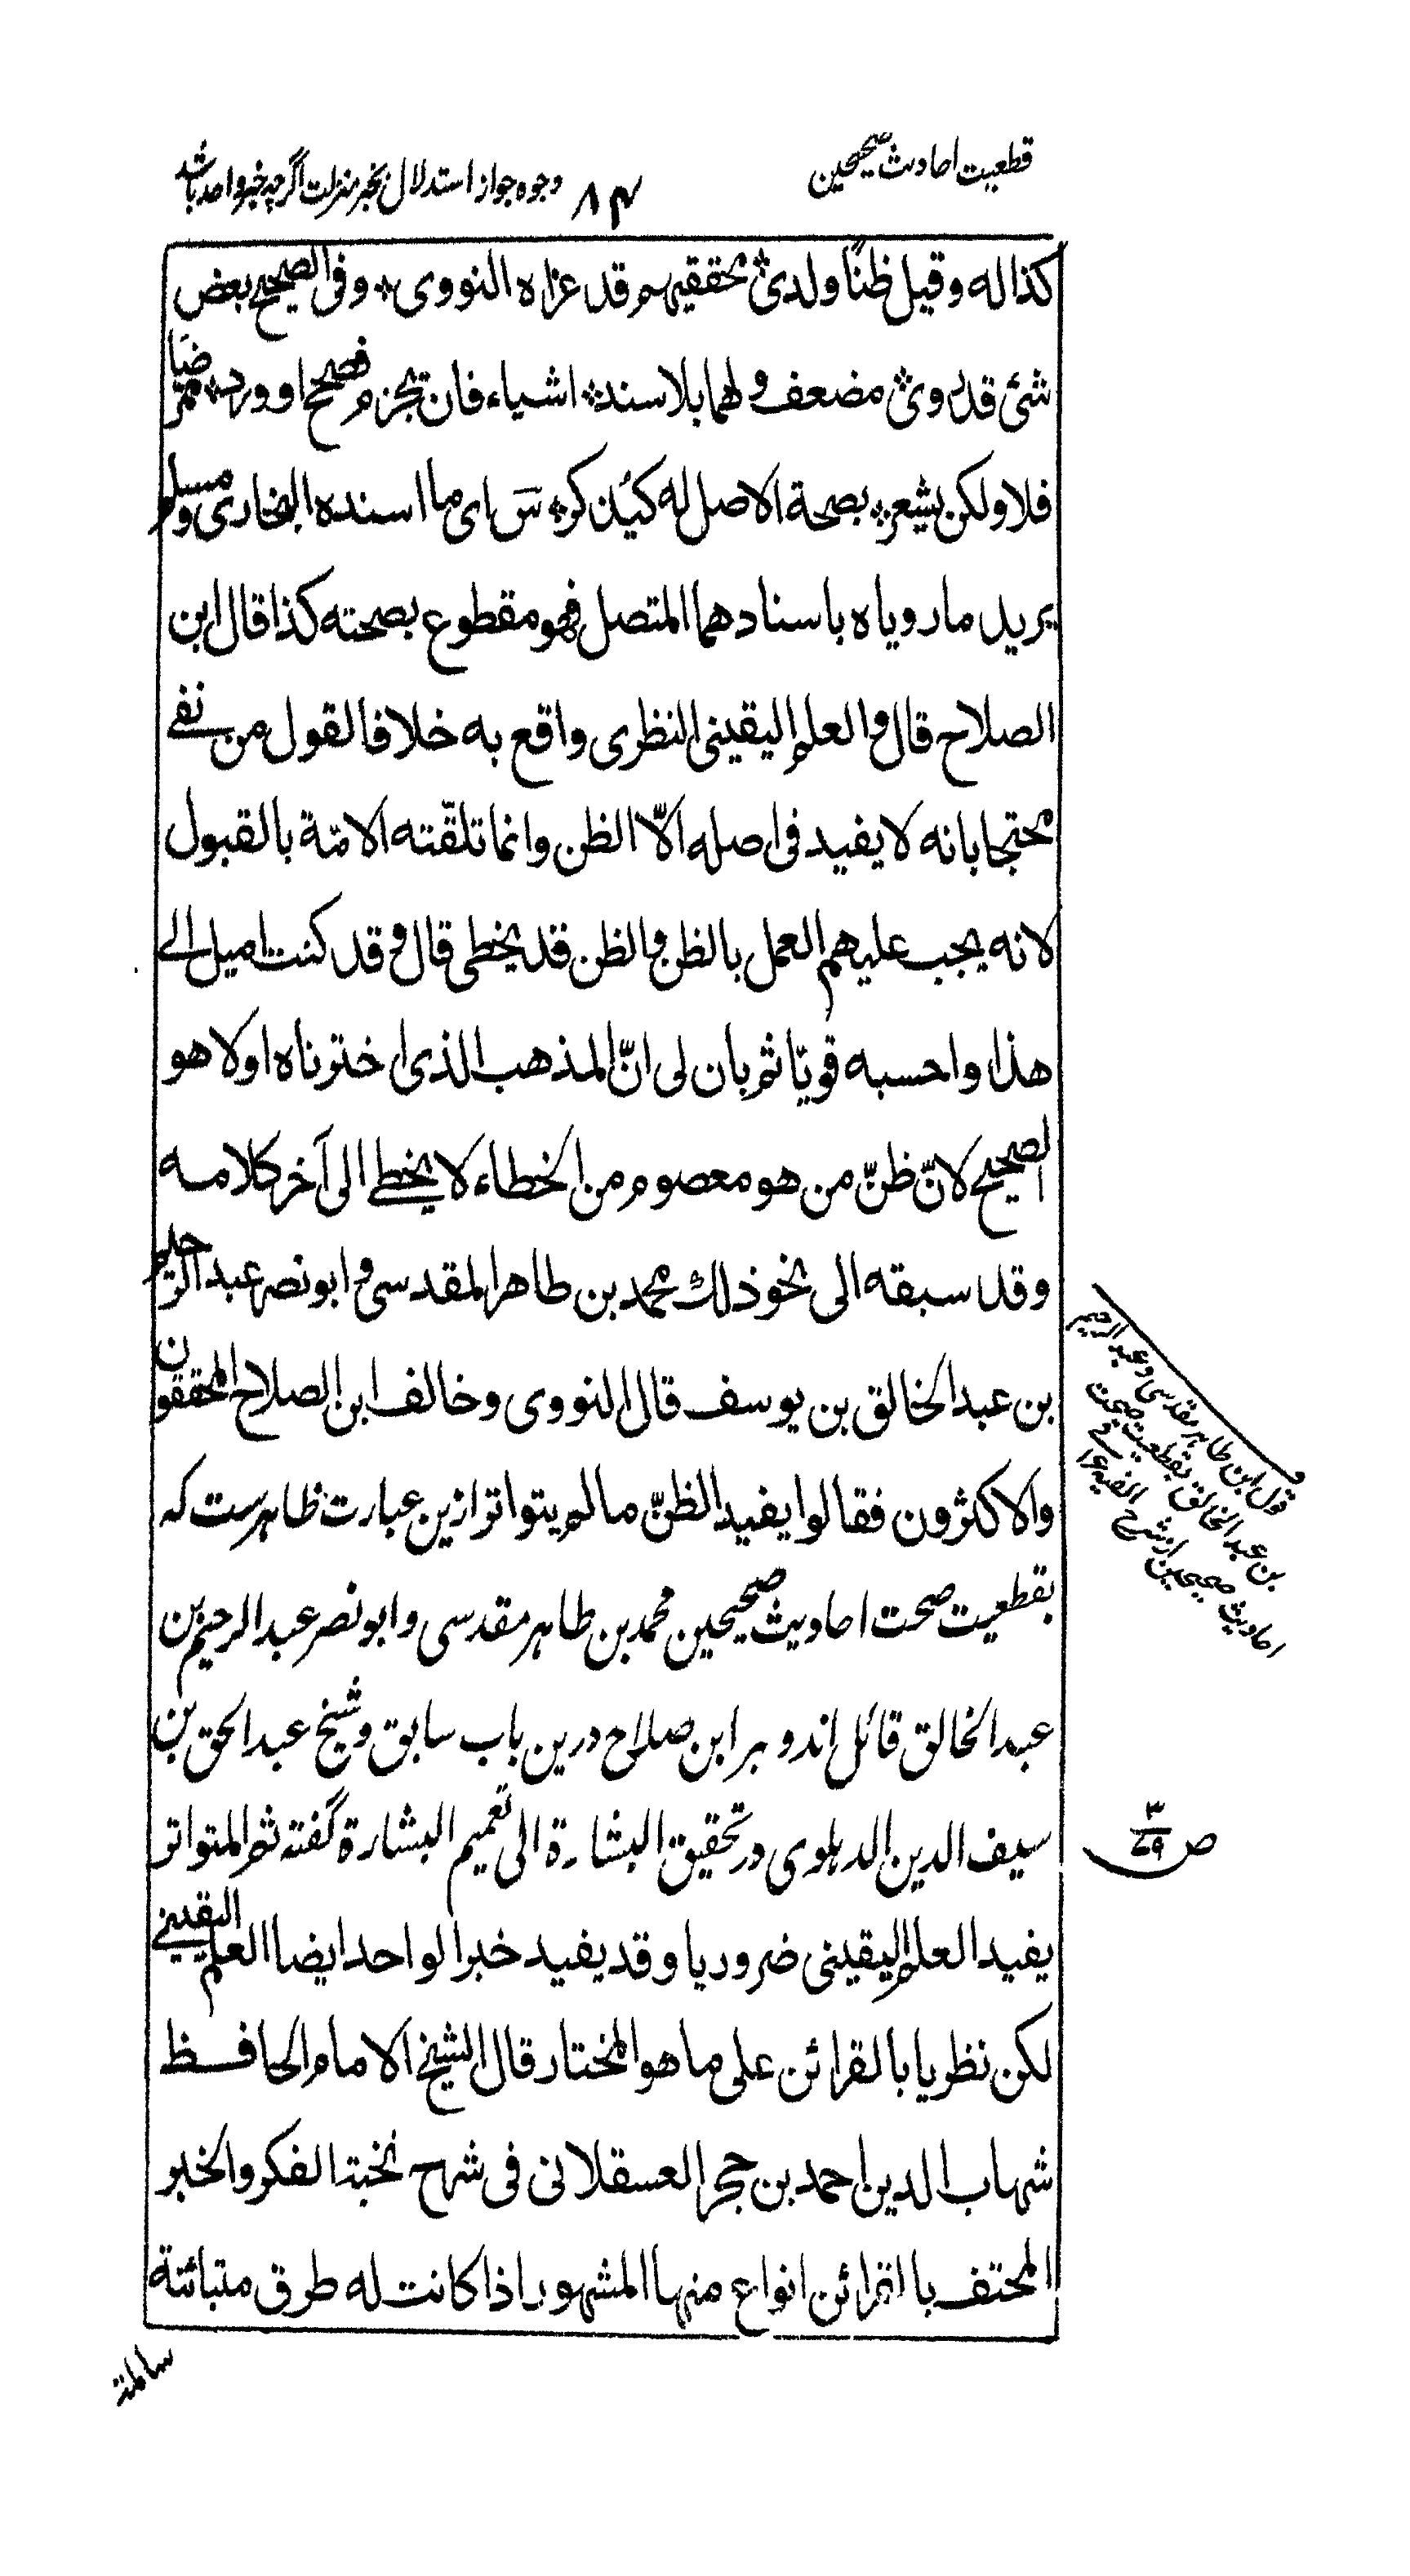 قطعیت احادیث صحیحین
۸۴
وجوه جواز استدلال بخبر منزلت اگرچه خبر واحد باشد
كذا له وقيل ظنا ولدى محققيهم قد عزاه النووى وفى الصحيح بعض
شئ قد روى مضعف ولهما بلا سند اشياء فان تجزم فصحح او ورد ممرضا
فلا ولكن يشعر بصحة الاصل له كيذكر ش اى ما اسنده البخارى ومسلم
يريد ما روياه باسنادهما المتصل فهو مقطوع بصحته كذا قال ابن
الصلاح قال والعلم اليقينى النظرى واقع به خلافا لقول من نفے
محتجا بانه لا يفيد فى اصله الّا الظن وانما تلقّته الامّة بالقبول
لانه يجب عليهم العمل بالظن والظن قد يخطى قال وقد كنت اميل الے
هذا واحسبه قويّا ثم بان لى انّ المذهب الذى اخترناه اولا هو
الصحيح لانّ ظنّ من هو معصوم من الخطاء لا يخطے الى آخر كلامه
وقد سبقه الى نحو ذلك محمد بن طاهر المقدسى وابو نصر عبد الرحيم
بن عبد الخالق بن يوسف قال النووى وخالف ابن الصلاح المحققون
والاكثرون فقالوا يفيد الظنّ ما لم يتواتر ازین عبارت ظاهرست که
بقطعیت صحت احادیث صحیحین محمد بن طاهر مقدسی و ابو نصر عبد الرحیم بن
عبد الخالق قائل اند و بر ابن صلاح درین باب سابق و شیخ عبد الحق بن
سیف الدین الدہلوی در تحقیق البشارة الی تعمیم البشارة گفته ثم المتواتر
يفيد العلم اليقينى ضروريا وقد يفيد خبر الواحد ايضا العلم اليقينے
لكن نظريا بالقرائن على ما هو المختار قال الشيخ الامام الحافظ
شهاب الدين احمد بن حجر العسقلانى فى شرح نخبة الفكر والخبر
المحتف بالقرائن انواع منها المشهور اذا كانت له طرق متبائنة
سالمة
قول ابن طاهر مقدسی و عبد الرحیم
بن عبد الخالق بقطعیت صحت
احادیث صحیحین از شرح الفیه
ص ۳/۷۹